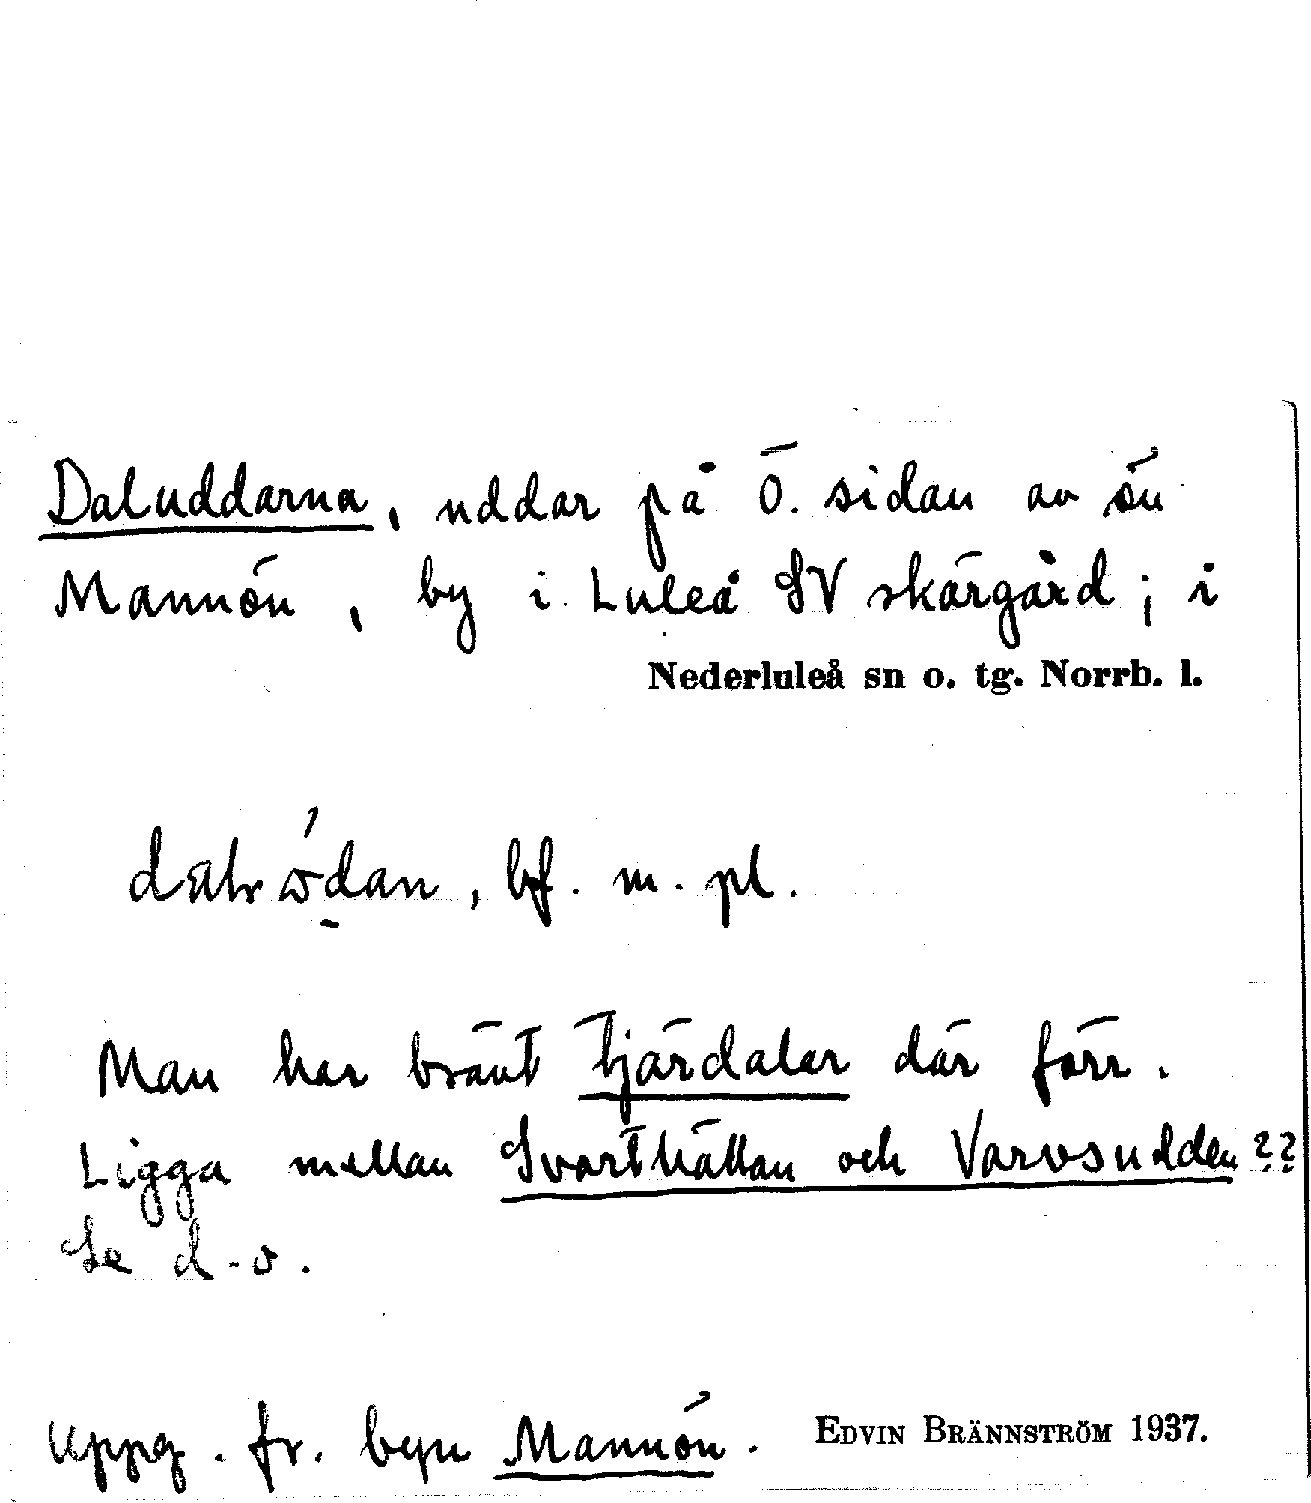 Daluddarna, uddar på Ö. sidan av ön
Mannön, by i Luleå SV skärgård; i
Nederluleå sn o. tg. Norrb. l.
bf. m. pl.
Man har bränt tjärdalar där förr.
Ligga mellan Svarthällan och Varvsudden ??
Se d. o.
Uppg. fr. byn Mannön. EDVIN BRÄNNSTRÖM 1937.